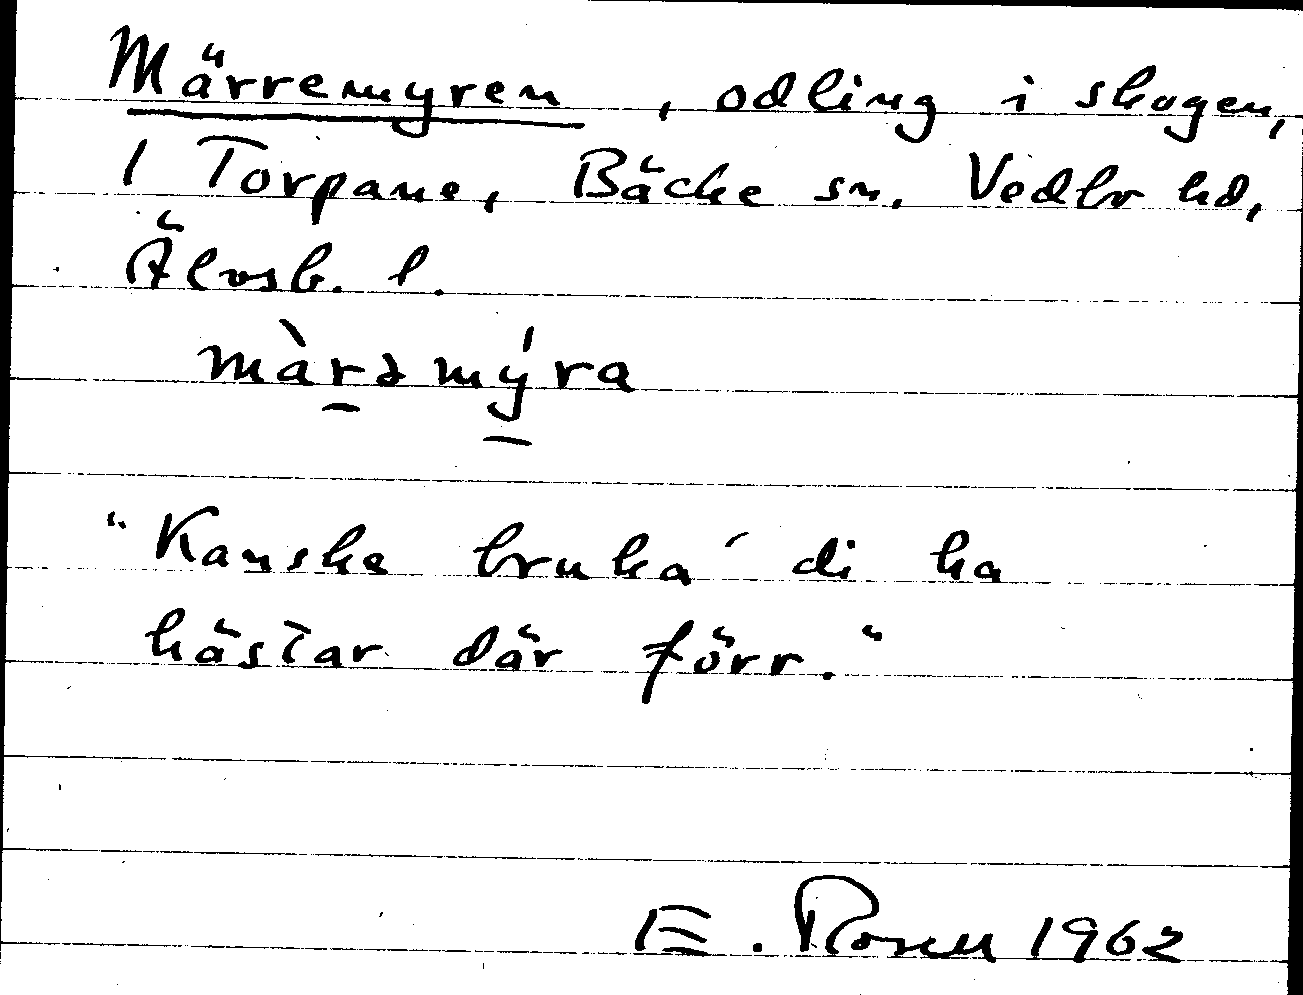 Märremyren, odling i skogen,
1 Torpane, Bäcke sn. Vedbo hd,
Älvsb. l.
màrəmýra
"Kanske bruka' di ha
hästar där förr."
E. Rosell 1962